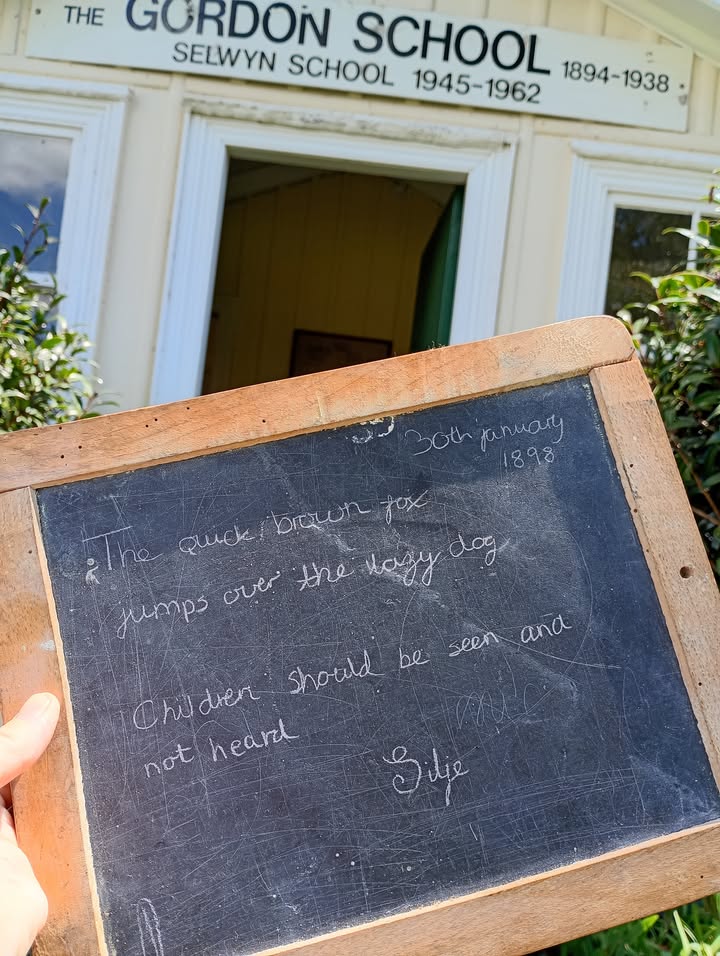 THE GORDON SCHOOL 1894-1938
SELWYN SCHOOL 1945-1962
30th january
1898
The quick brown fox
jumps over the lazy dog
Children should be seen and
not heard
Silje